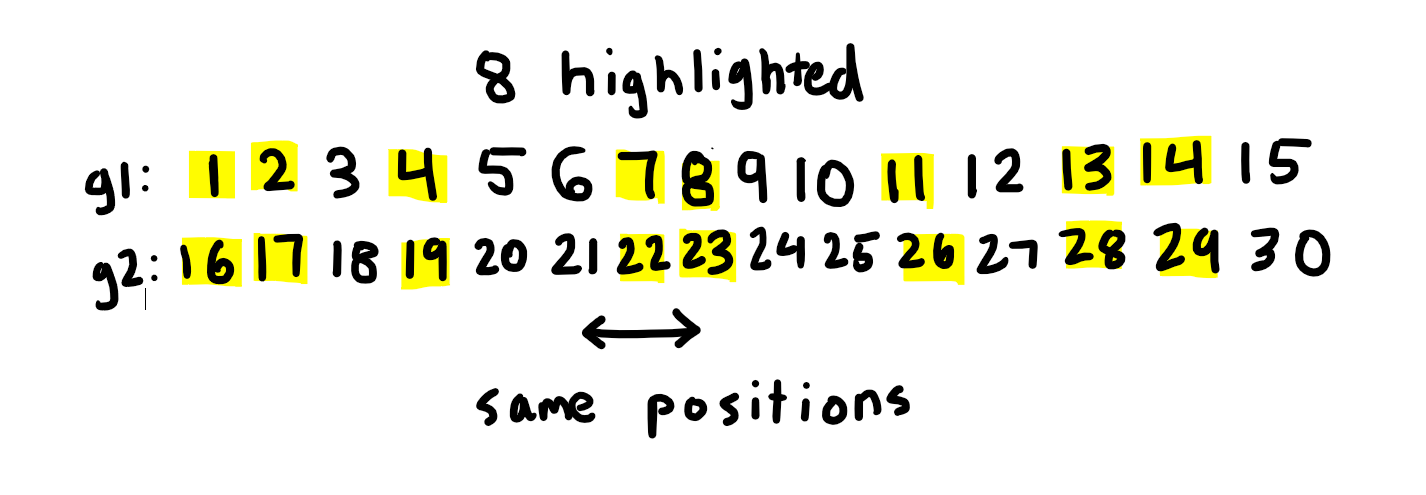 8 highlighted
g1: 1 2 3 4 5 6 7 8 9 10 11 12 13 14 15
g2: 16 17 18 19 20 21 22 23 24 25 26 27 28 29 30
same positions